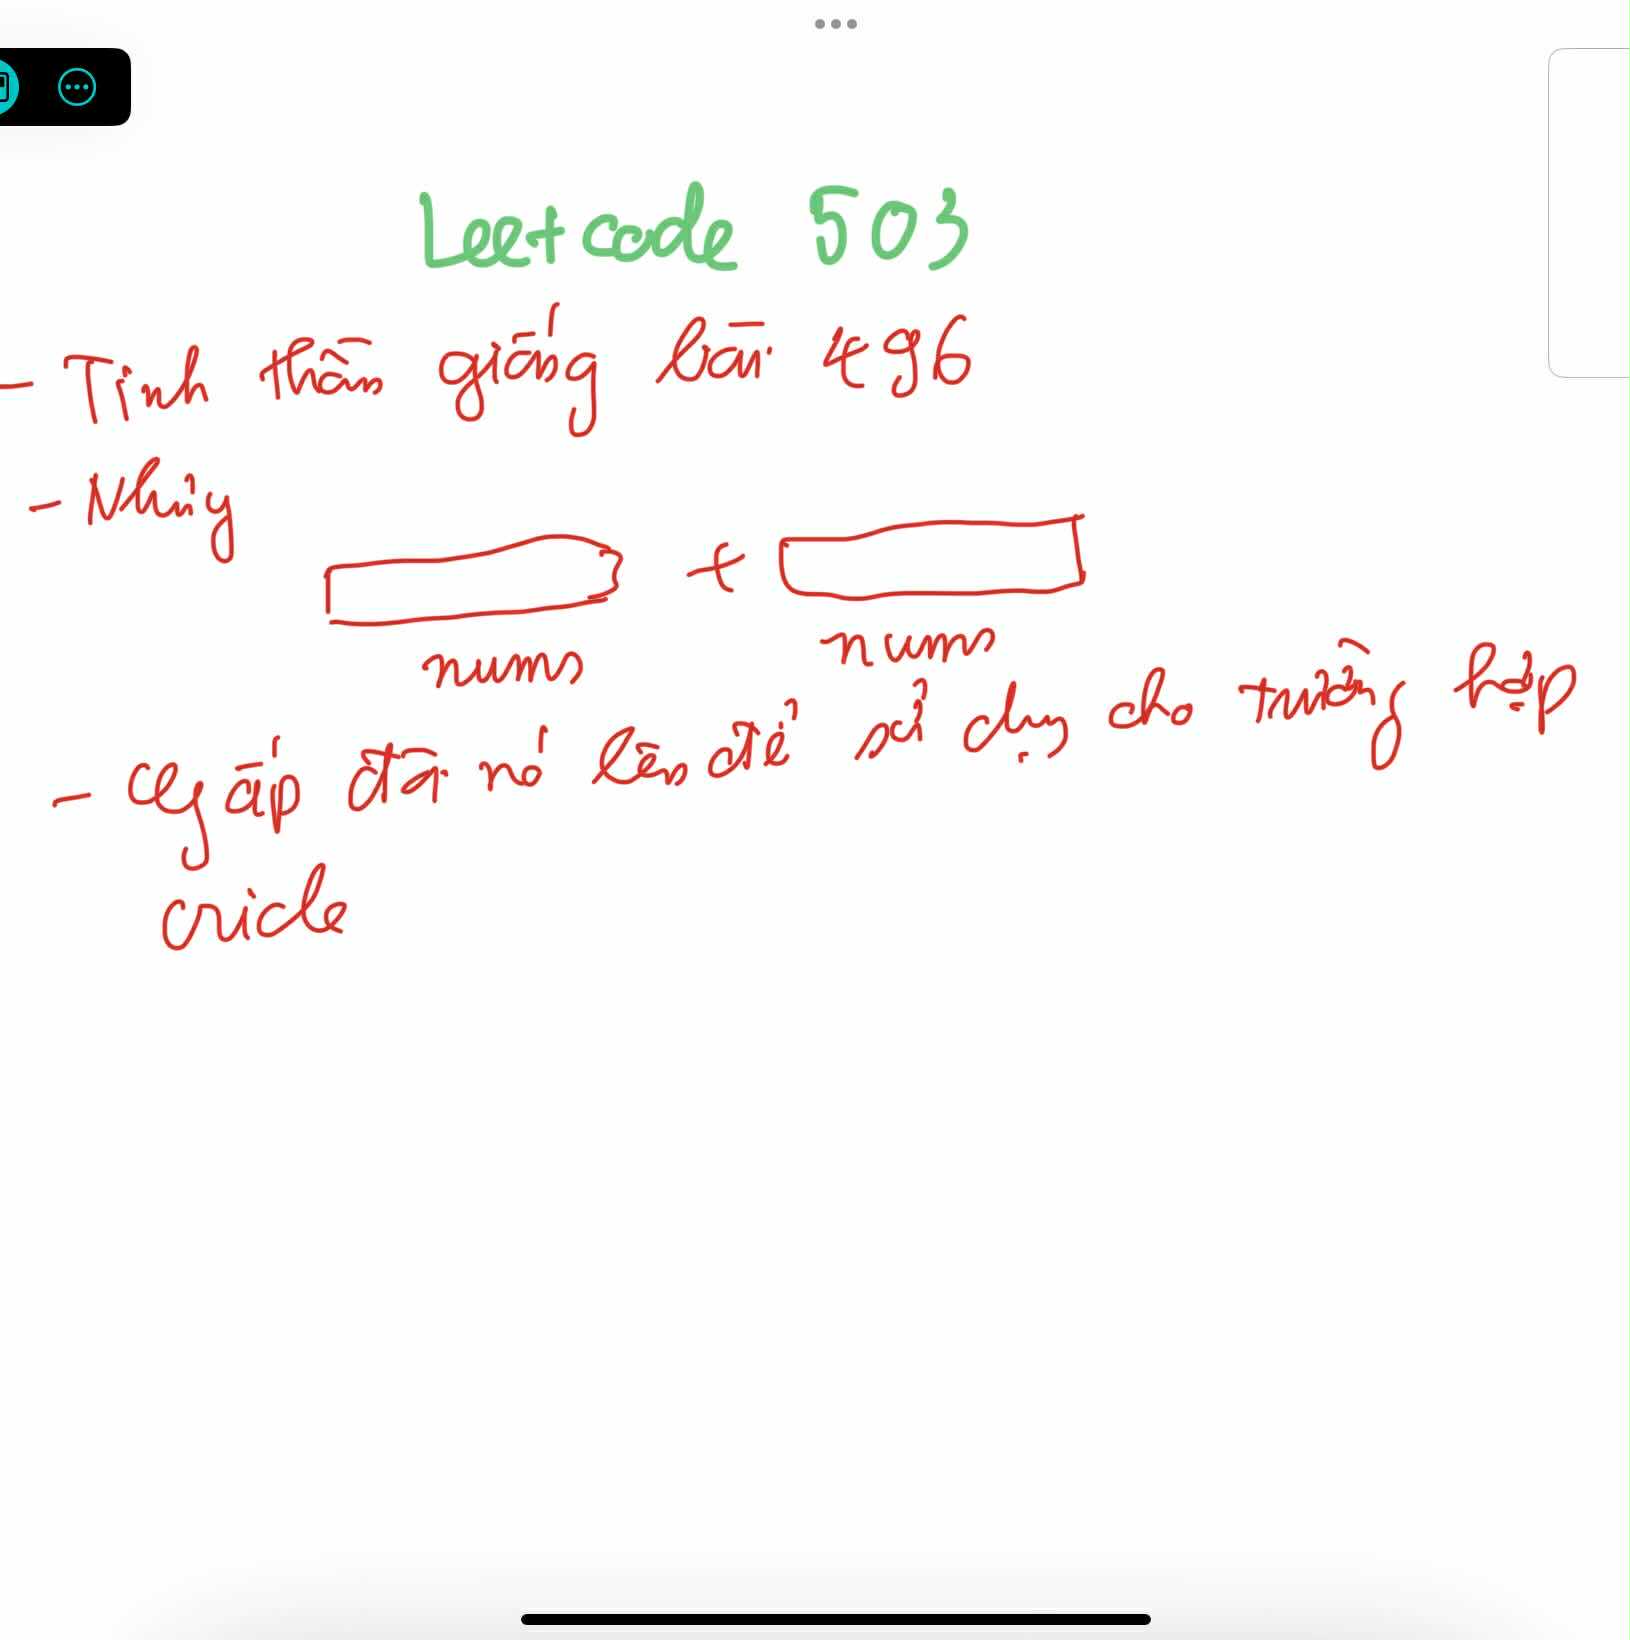 Leetcode 503
- Tinh thần giống bài 496
- Nhưng
+
nums nums
- Gấp đôi nó lên để sử dụng cho trường hợp
cricle